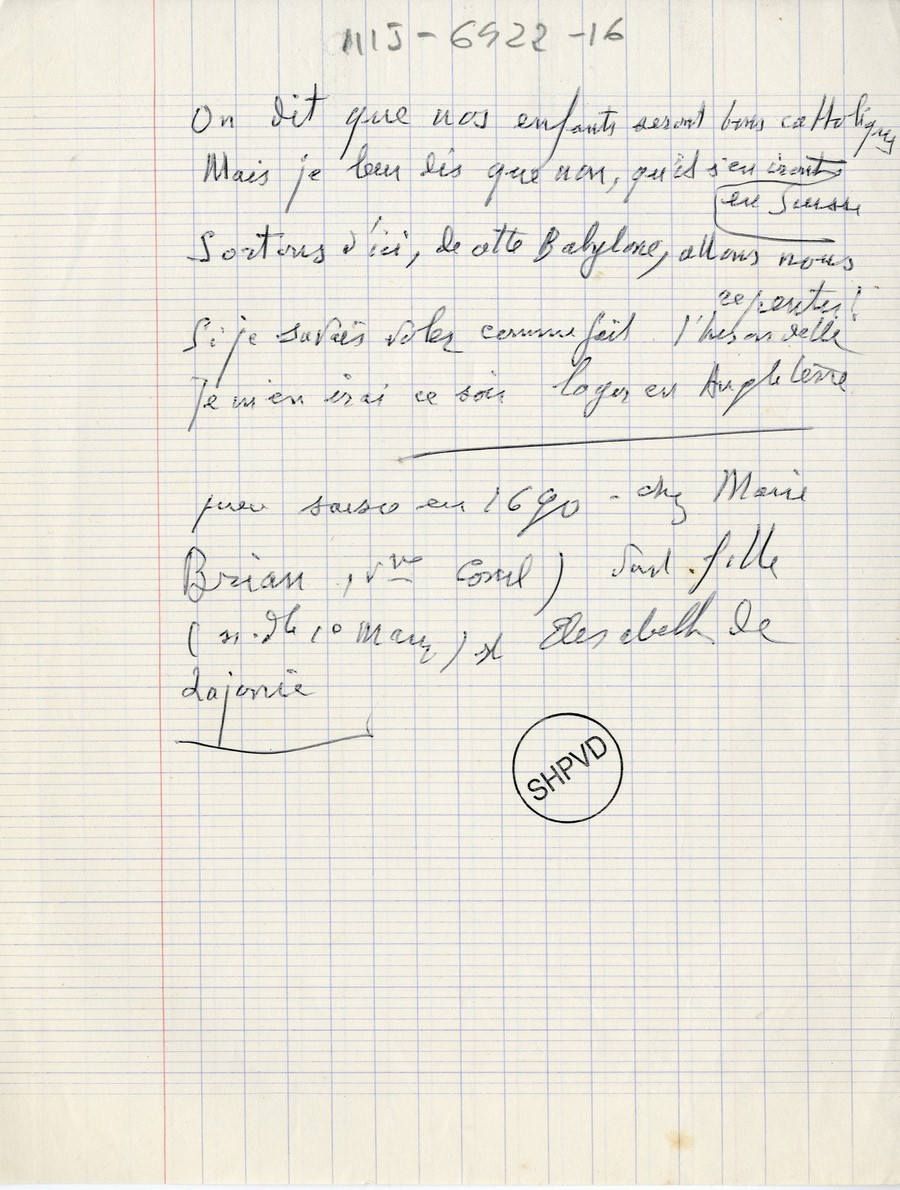 MIJ-6922-16
On dit que nos enfants seront bons catholiques
Mais je leur dis que non, qu'ils s'en iront
en Suisse
Sortons d'ici, de cette Babylone, allons nous
repentir!
Si je savais voler comme fait l'hirondelle
Je m'en irai ce soir loger en Angleterre
saisie en 1690 - chez Marie
Brian, vve) dont fille
(n. Elisabeth de
Lajonie
SHPVD